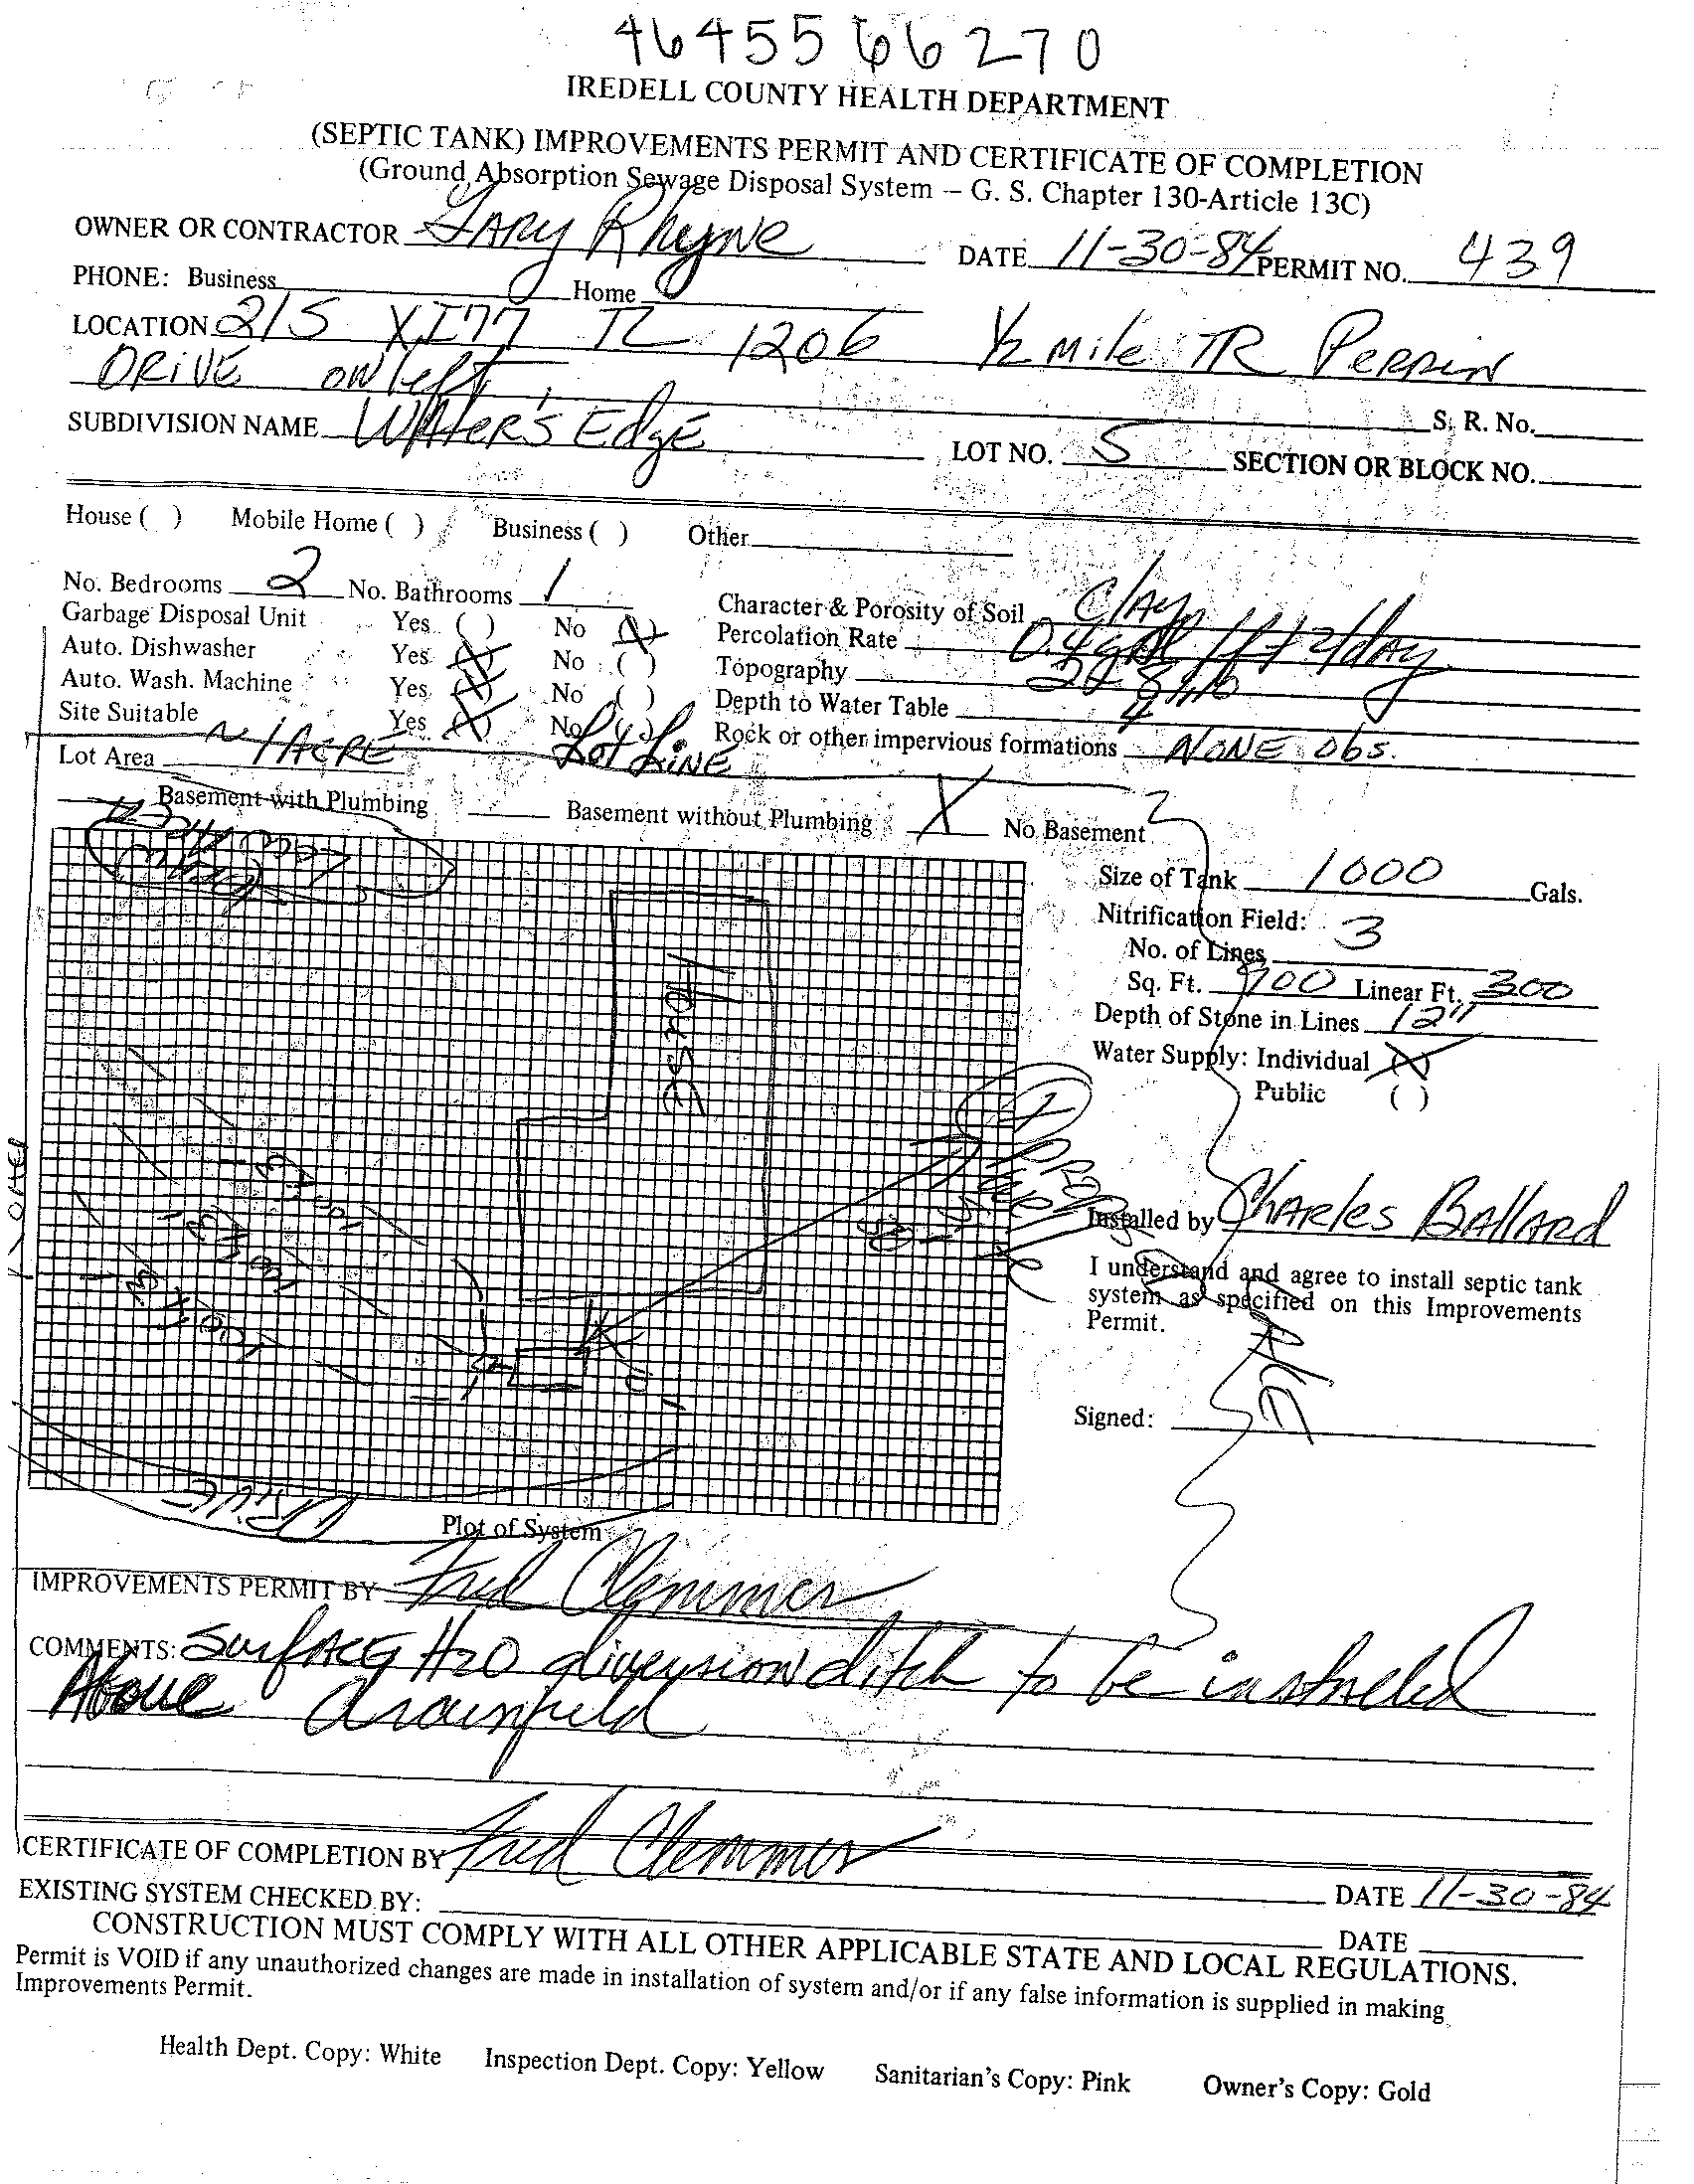 4645566270
IREDELL COUNTY HEALTH DEPARTMENT
(SEPTIC TANK) IMPROVEMENTS PERMIT AND CERTIFICATE OF COMPLETION
(Ground Absorption Sewage Disposal System – G. S. Chapter 130-Article 13C)
OWNER OR CONTRACTOR GARY Rhyne DATE 11-30-84 PERMIT NO. 439
PHONE: Business Home
LOCATION 21S XI77 TL 1206 1/2 Mile TR PERRIN
DRIVE ON left,
S. R. No.
SUBDIVISION NAME WATER'S EdgE LOT NO. 5 SECTION OR BLOCK NO.
House ( ) Mobile Home ( ) Business ( ) Other
No. Bedrooms 2 No. Bathrooms 1 Character & Porosity of Soil ClAy
Garbage Disposal Unit Yes ( ) No (X) Percolation Rate 0.4 gal/ft2/day
Auto. Dishwasher Yes (X) No ( ) Topography
Auto. Wash. Machine Yes (X) No ( ) Depth to Water Table
Site Suitable Yes (X) No ( ) Rock or other impervious formations NONE obs.
Lot Area ~1 ACRE Lot LiNE
Basement with Plumbing Basement without Plumbing X No Basement
House
Size of Tank 1000 Gals.
Nitrification Field:
No. of Lines 3
Sq. Ft. 900 Linear Ft. 300
Depth of Stone in Lines 12"
Water Supply: Individual (X)
Public ( )
Installed by CHARles BAllARd
I understand and agree to install septic tank
system as specified on this Improvements
Permit.
Signed:
DRiVE
Plot of System
IMPROVEMENTS PERMIT BY Fred Clemmer
COMMENTS: SurfACE H2O diversion ditch to be installed
Above drainfield
CERTIFICATE OF COMPLETION BY Fred Clemmer DATE 11-30-84
EXISTING SYSTEM CHECKED BY: DATE
CONSTRUCTION MUST COMPLY WITH ALL OTHER APPLICABLE STATE AND LOCAL REGULATIONS.
Permit is VOID if any unauthorized changes are made in installation of system and/or if any false information is supplied in making
Improvements Permit.
Health Dept. Copy: White Inspection Dept. Copy: Yellow Sanitarian's Copy: Pink Owner's Copy: Gold